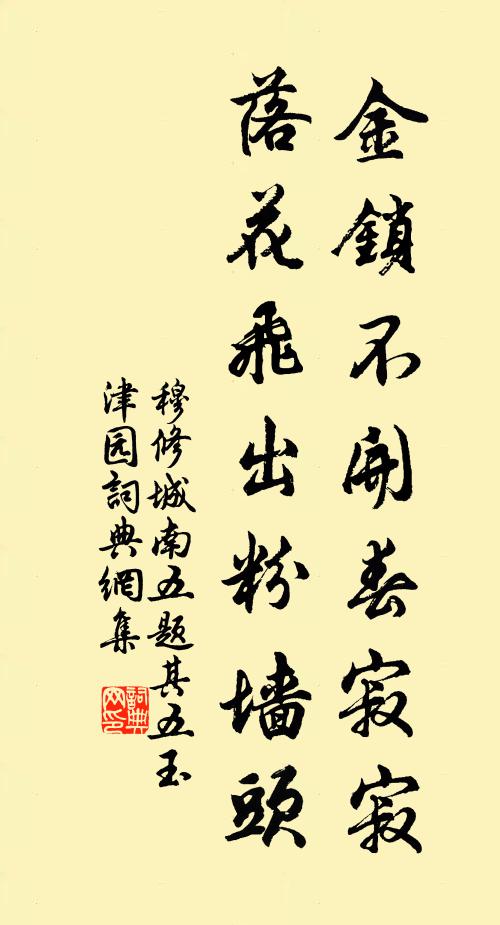 金鎖不開春寂寂
落花飛出粉墻頭
穆修城南五题其五玉
津园詞典網集
詞典
网印